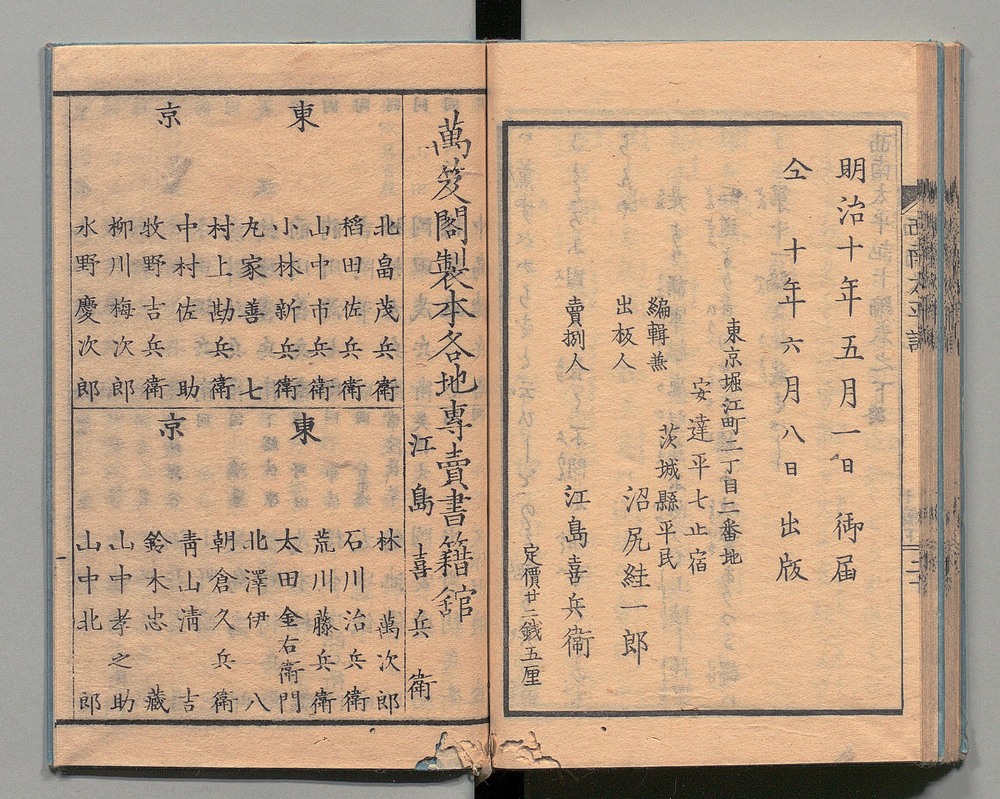 明治十年五月一日御届
仝十年六月八日出版
東京堀江町二丁目二番地
安達平七止宿
茨城縣平民
編輯兼
出板人
沼尻絓一郎
賣捌人
江島喜兵衞
定價廿二錢五厘
萬笈閣製本各地專賣書籍舘
江島喜兵衞
東京
北畠茂兵衞
稻田佐兵衞
山中市兵衞
小林新兵衞
丸家善七
村上勘兵衞
中村佐助
牧野吉兵衞
柳川梅次郎
水野慶次郎
東京
林萬次郎
石川治兵衞
荒川藤兵衞
太田金右衞門
北澤伊八
朝倉久兵衞
靑山淸吉
鈴木忠藏
山中孝之助
山中北郎